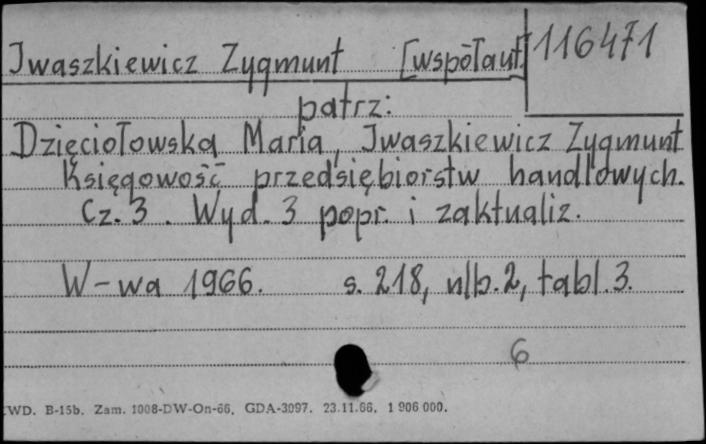 Iwaszkiewicz Zygmunt [współaut.] 116471
patrz:
Dzięciołowska Maria, Iwaszkiewicz Zygmunt
Księgowość przedsiębiorstw handlowych.
Cz. 3. Wyd. 3 popr. i zaktualiz.
W-wa 1966. s. 218, nlb. 2, tabl. 3.
6
WD. B-15b. Zam. 1008-DW-On-66. GDA-3097. 23.11.66. 1 906 000.